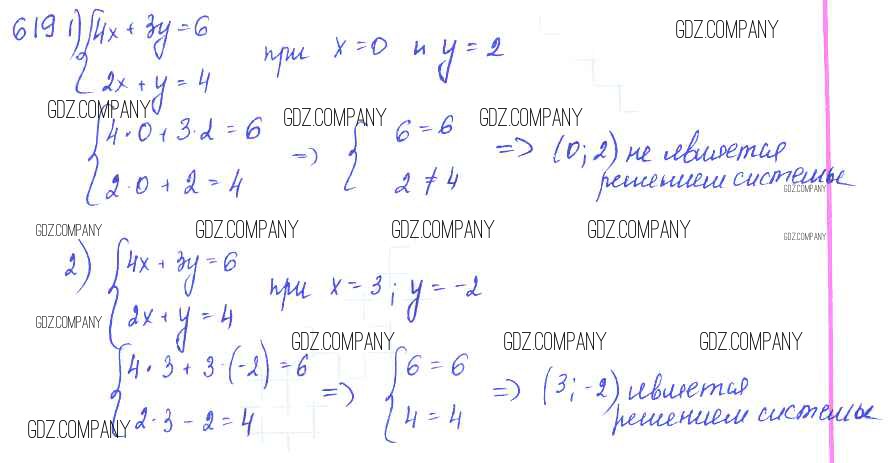 619 1) { 4x + 3y = 6
2x + y = 4
при x = 0 и y = 2
GDZ.COMPANY
GDZ.COMPANY
GDZ.COMPANY
GDZ.COMPANY
{ 4·0 + 3·2 = 6
2·0 + 2 = 4
=> { 6 = 6
2 ≠ 4
=> (0; 2) не является
решением системы
GDZ.COMPANY
GDZ.COMPANY
GDZ.COMPANY
GDZ.COMPANY
GDZ.COMPANY
GDZ.COMPANY
2) { 4x + 3y = 6
2x + y = 4
при x = 3; y = -2
GDZ.COMPANY
GDZ.COMPANY
GDZ.COMPANY
GDZ.COMPANY
{ 4·3 + 3·(-2) = 6
2·3 - 2 = 4
=> { 6 = 6
4 = 4
=> (3; -2) является
решением системы
GDZ.COMPANY